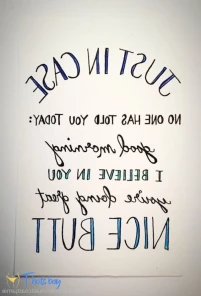 JUST IN CASE
NO ONE HAS TOLD YOU TODAY:
good morning
I BELIEVE IN YOU
you're doing great
NICE BUTT